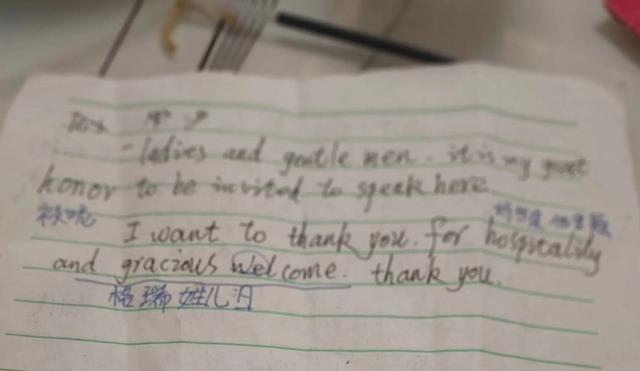 - ladies and gentle men. it is my great
honor to be invited to speak here.
I want to thank you. for hospitality
and gracious welcome. thank you.
格瑞姓儿